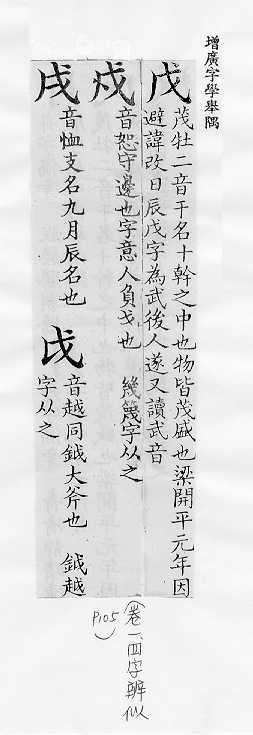 增廣字學舉隅
戊 茂牡二音干名十幹之中也物皆茂盛也梁開平元年因
避諱改日辰戊字為武後人遂又讀武音
戍 音恕守邊也字意人負戈也 幾篾字从之
戌 音恤支名九月辰名也 戉 音越同鉞大斧也 鉞越
字从之
(卷一、四字辨似
P105)